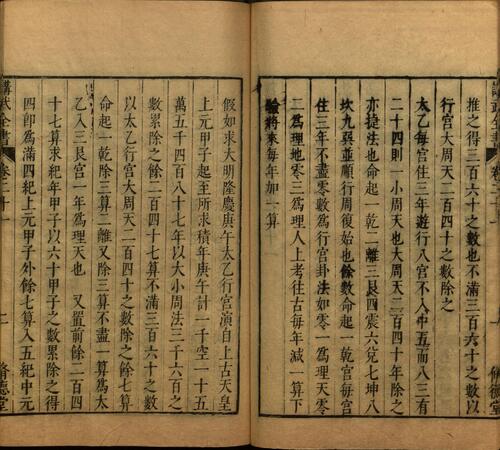 推之得三百六十數也不滿三百六十之數以
行宮大周天二百四十之數除之
太乙每宮住三年遊行八宮不入中五而八三有
二十四則一小周天也大周天二百四十年除之
亦捷法也命起一乾二離三艮四震六兌七坤八
坎九巽並順行周復始也餘數命起一乾宮每宮
住三年不盡零數為行宮卦法如零一為理天零
二為理地零三為理人上考往古每年減一算下
驗將來每年加一算
講武全書
卷二十一
脩德堂
假如求大明隆慶庚午太乙行宮演自上古天皇
上元甲子起至所求積年庚午計一千空一十五
萬五千四百八十七年以大小周法三千六百之
數累除之餘二百四十七算不滿三百六十之數
以太乙行宮大周天二百四十之數除之餘七算
命起一乾除三算二離又除三算不盡一算為太
乙入三艮宮一年為理天也 又置前餘二百四
十七算求紀年甲子以六十甲子之數累除之得
四即為滿四紀上元甲子外餘七算入五紀中元
講武全書
卷二十一
二
脩德堂